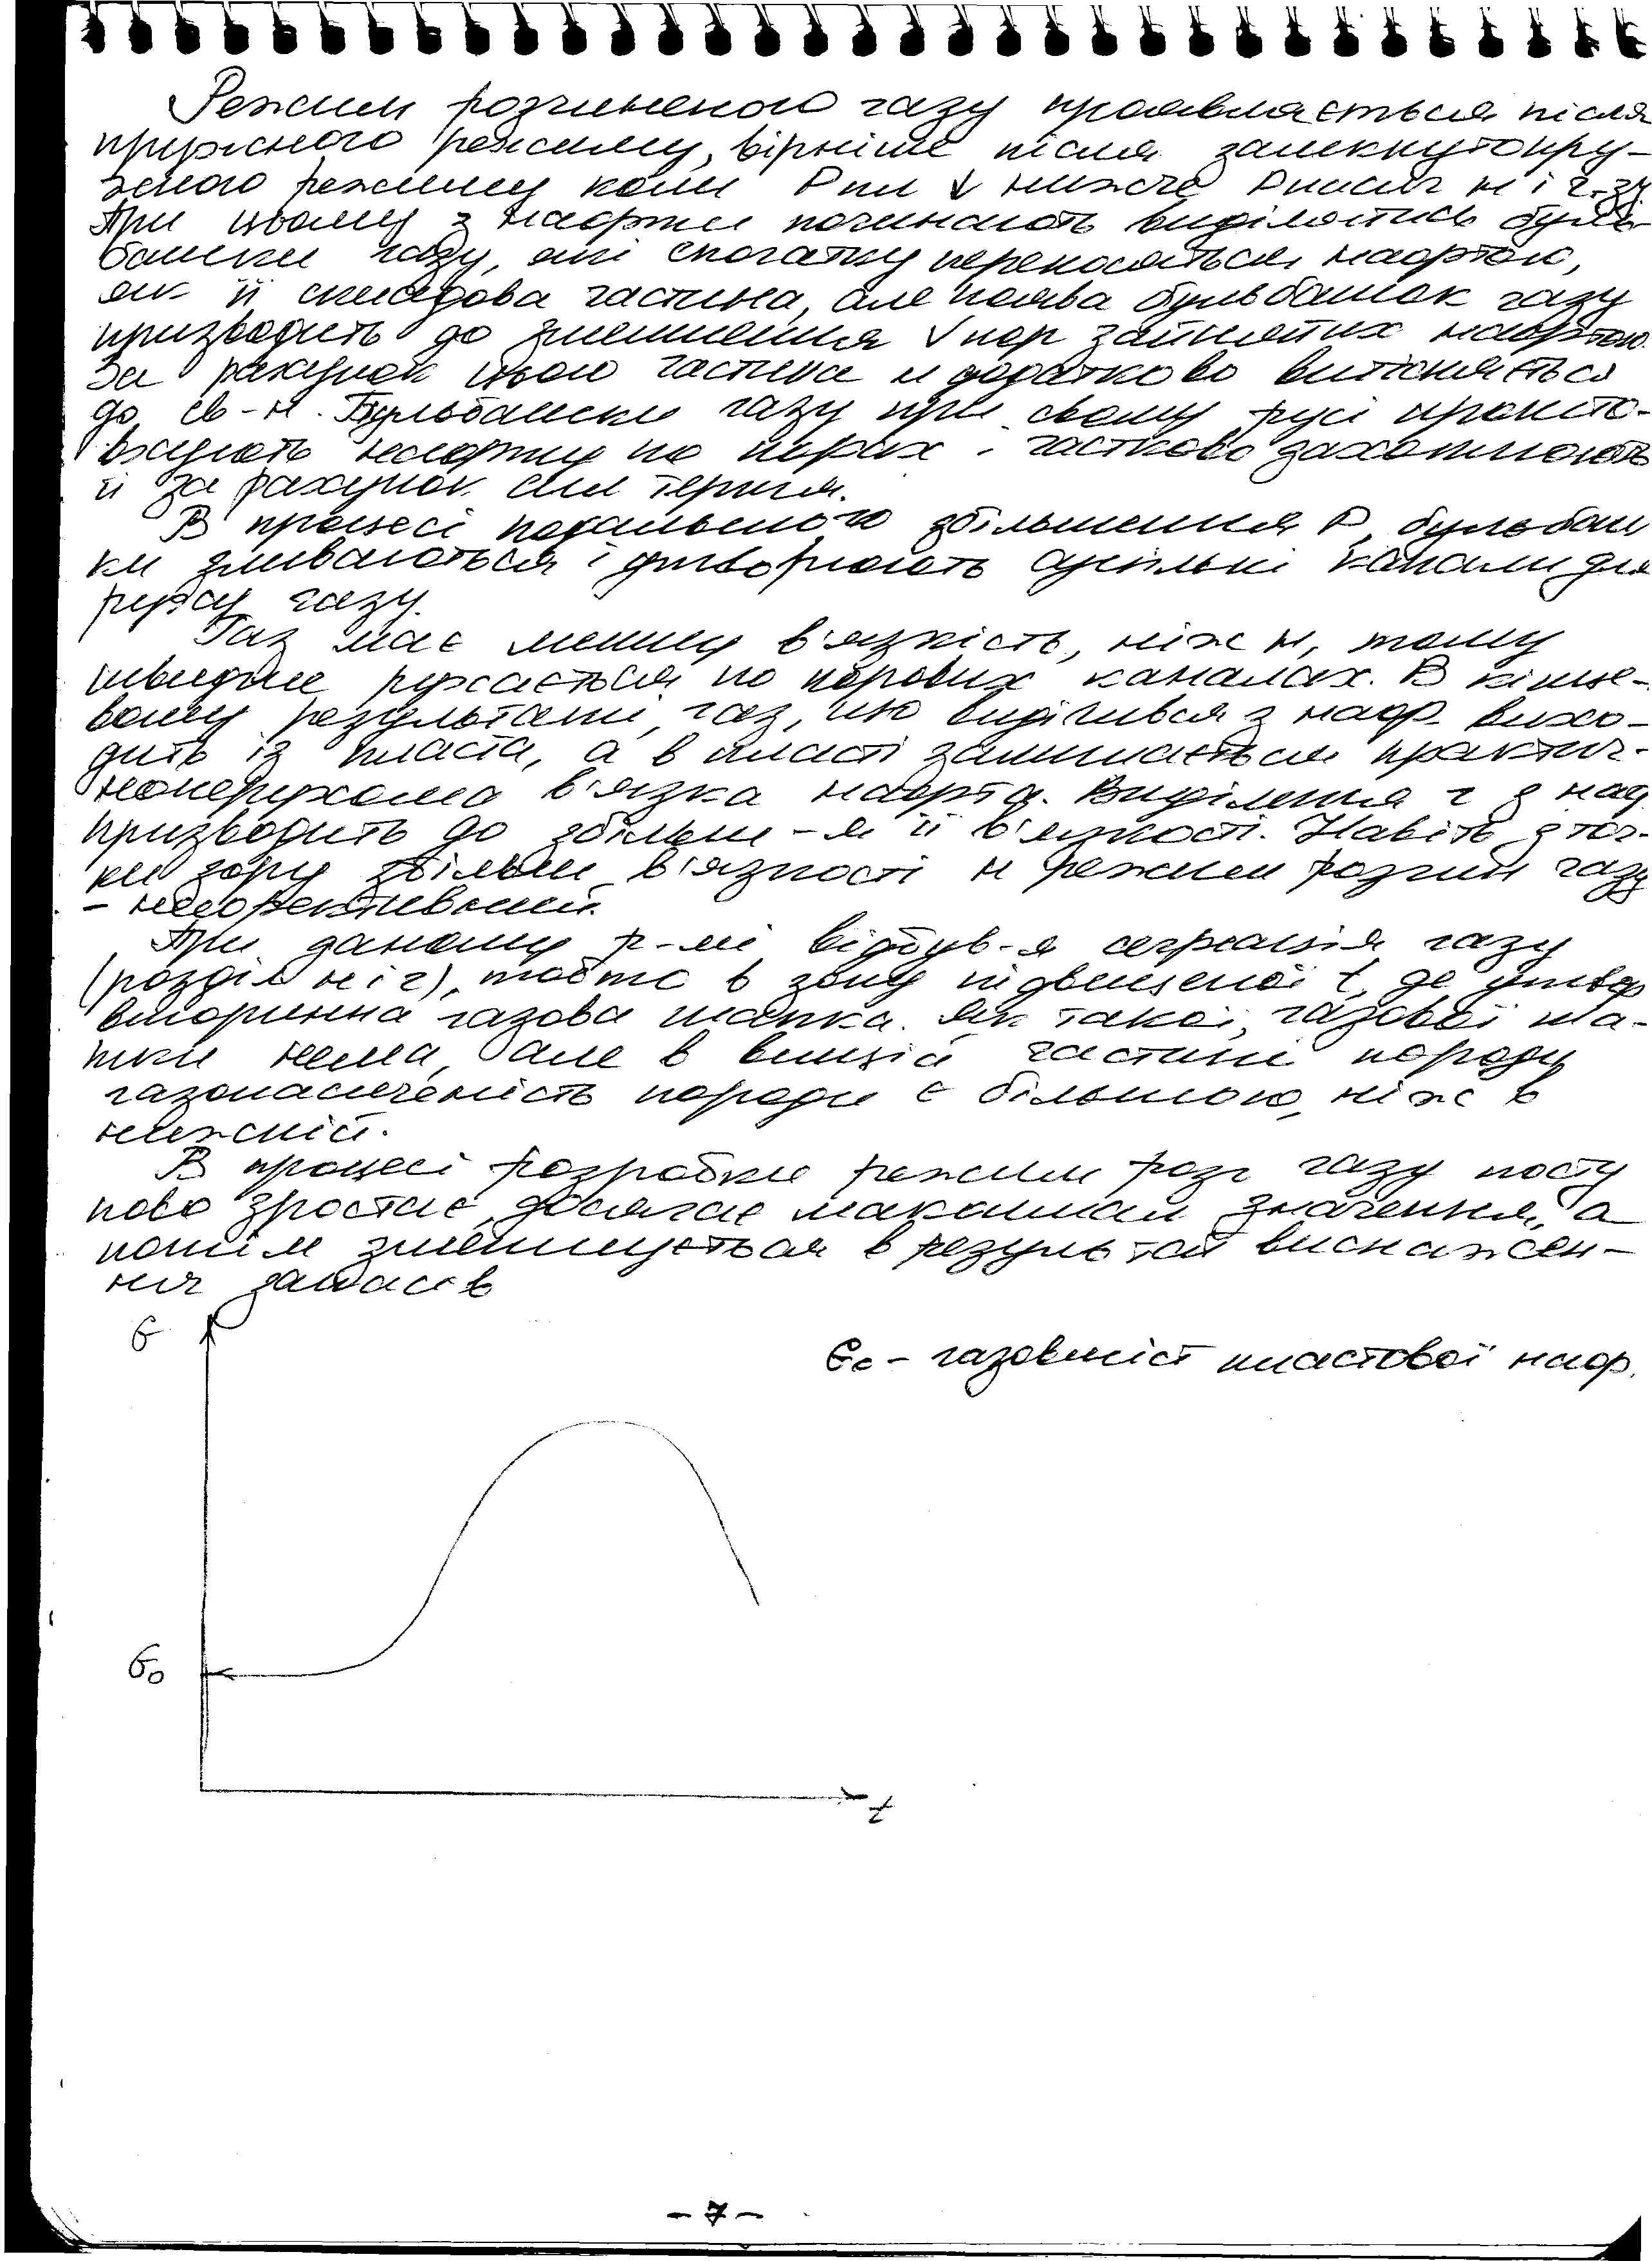 Режим розчиненого газу проявляється після
пружного режиму, вірніше після замкнутопру-
жного режиму коли Рпл ↓ нижче Рнасич н і г.
При цьому з нафти починають виділятись буль-
башки газу, які спочатку переносяться нафтою,
як її складова частина, але поява бульбашок газу
призводить до зменшення V пор зайнятих нафтою.
За рахунок цього частина н додатково витісняється
до св-н. Бульбашки газу при своєму русі прошто-
вхують нафту по порах, частково захоплюють
її за рахунок сил тертя.
В процесі подальшого збільшення Р, бульбаш
ки зливаються і утворюють суцільні канали для
руху газу.
Газ має меншу в'язкість, ніж н, тому
швидше рухається по порових каналах. В кінце-
вому результаті, газ, що виділився з наф. вихо-
дить із пласта, а в пласті залишається практич-
нонерухома в'язка нафта. Виділення г з наф
призводить до збільше-я її в'язкості. Навіть з точ-
ки зору збільш в'язкості н режим розчин газу
- неефективний.
При даному р-мі відбув-я сегрегація газу
(розділ н і г), тобто в зону підвищеної t, де утвор
вторинна газова шапка. Як такої, газової ша-
пки нема, але в вищій частині породи
газонасиченість породи є більшою, ніж в
нижній.
В процесі розробки режим розч газу посту
пово зростає, досягає максимал значення, а
потім зменшується в результаті виснажен-
ня запасів
G
G₀ - газовміст пластової наф.
G₀
t
- 7 -